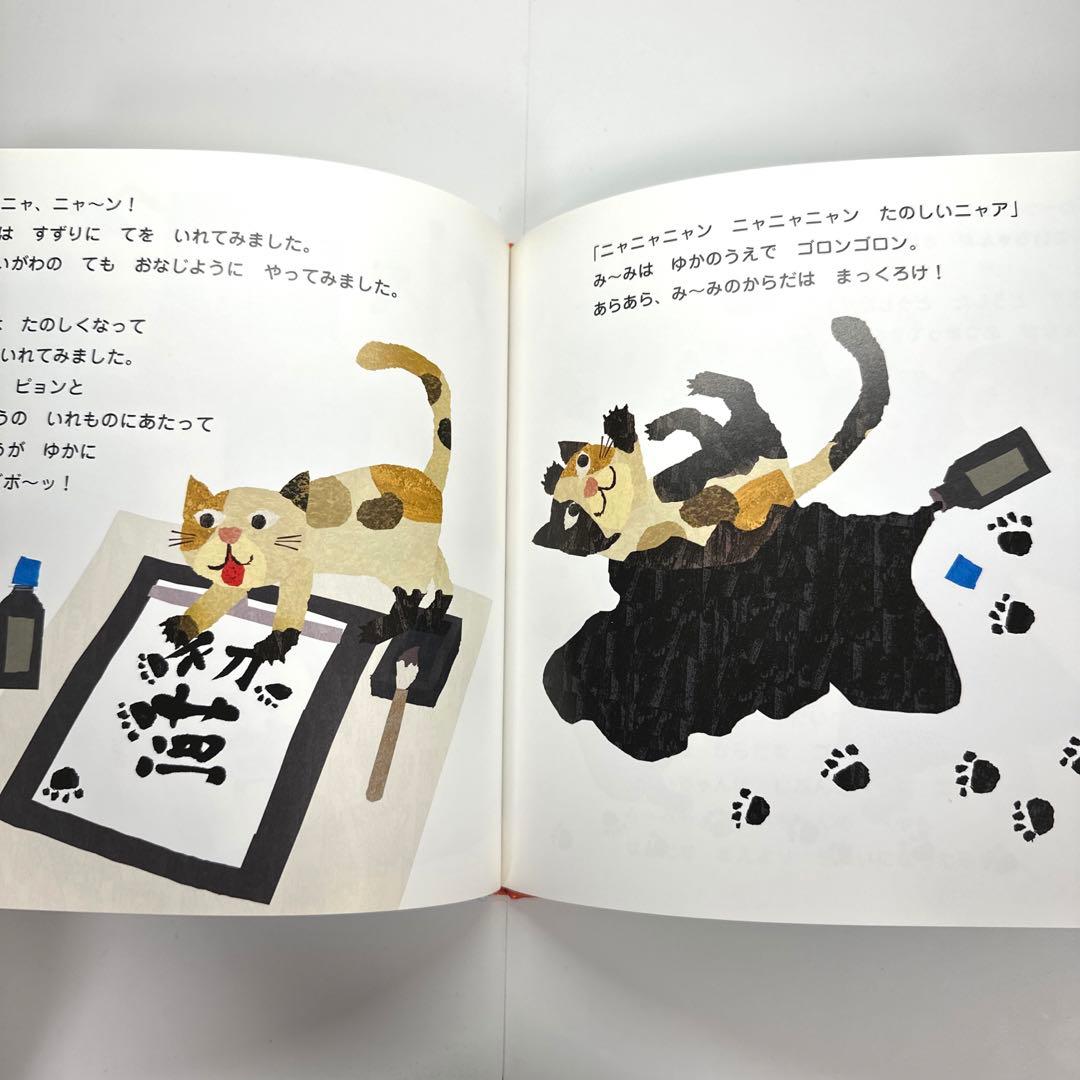 ニャ、ニャ〜ン！
は　すずりに　てを　いれてみました。
いがわの　ても　おなじように　やってみました。
たのしくなって
いれてみました。
ピョンと
うの　いれものにあたって
うが　ゆかに
ボ〜ッ！
「ニャニャニャン　ニャニャニャン　たのしいニャア」
み〜みは　ゆかのうえで　ゴロンゴロン。
あらあら、み〜みのからだは　まっくろけ！